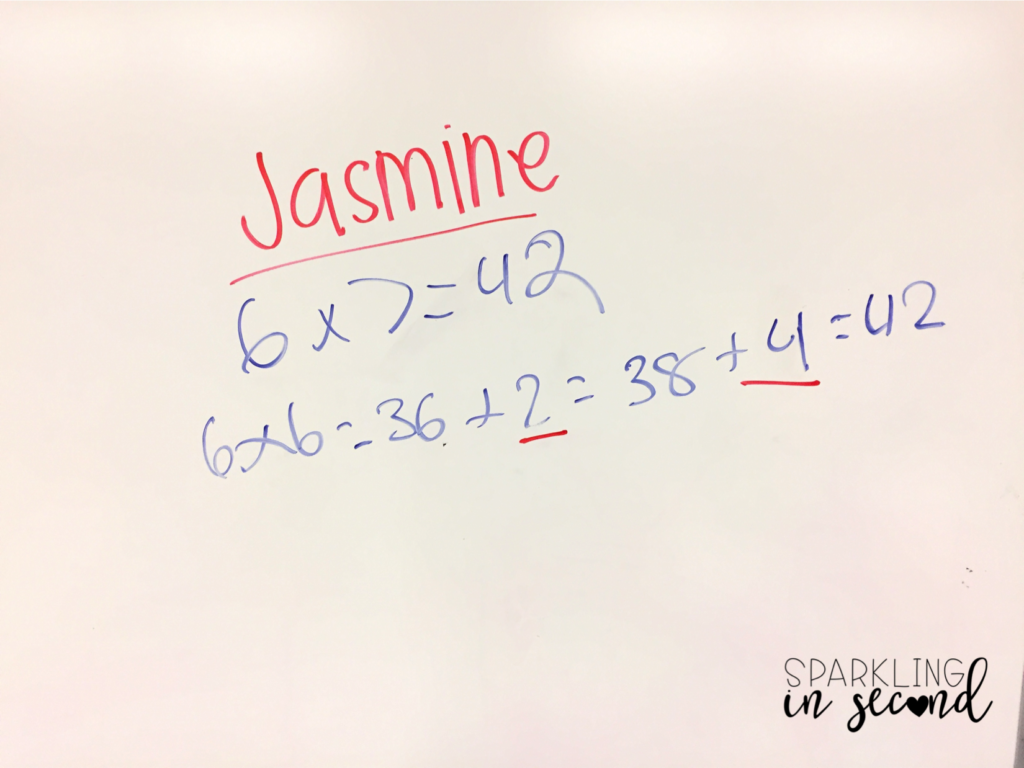 Jasmine
6 x 7 = 42
6 x 6 = 36 + 2 = 38 + 4 = 42
SPARKLING
in second